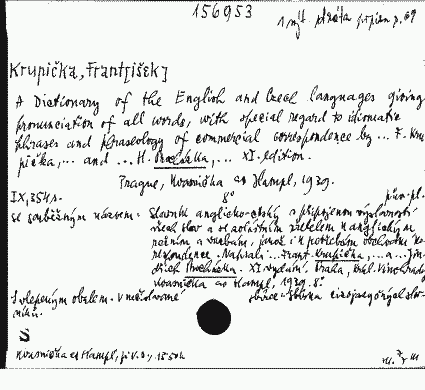 156953
Krupička, Franti[šek]
A Dictionary of the English and Czech languages giving
pronunciation of all words, with special regard to idiomatic
phrases and phraseology of commercial correspondence by ... F. Kru
pička, ... and ... H. Procházka, ... XI. edition.
Prague, Kvasnička as Hampl, 1939.
IX, 354 s. 8° pův. pl.
se souběžným názvem: Slovník anglicko-český s připojenou výslovností
všech slov a se zvláštním zřetelem k anglickým
rčením a vazbám, jakož i k potřebám obchodní ko-
respondence. Napsali ... Frant. Krupička, ... a ... Jin-
dřich Procházka. XI. vydání. Praha, Král. Vinohrady
Kvasnička as Hampl, 1939. 8°
S
Kvasnička a Hampl,